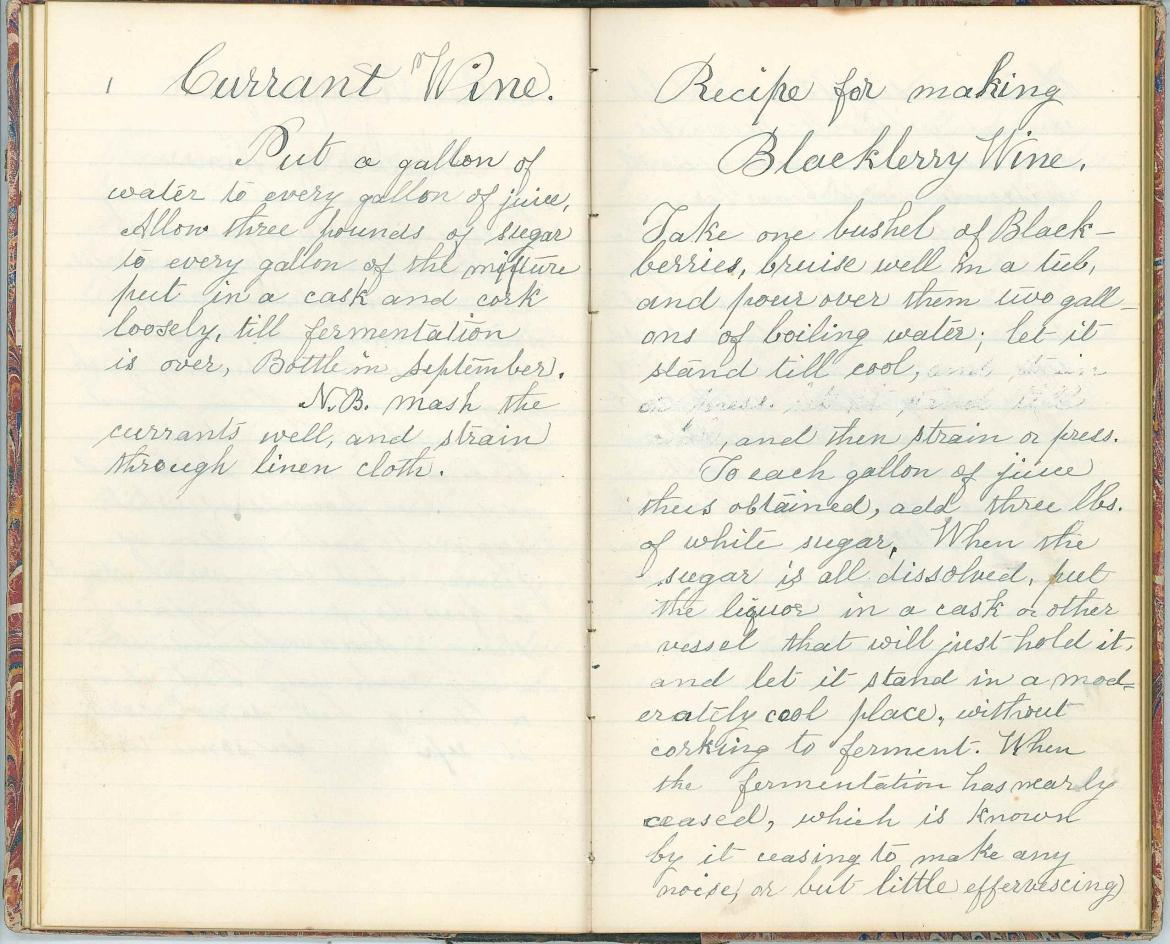 Currant Wine.
Put a gallon of
water to every gallon of juice,
Allow three pounds of sugar
to every gallon of the mixture
put in a cask and cork
loosely, till fermentation
is over, Bottle in September.
N.B. mash the
currants well, and strain
through linen cloth.
Recipe for making
Blackberry Wine.
Take one bushel of Black-
berries, bruise well in a tub,
and pour over them two gall-
ons of boiling water; let it
stand till cool,
, and then strain or press.
To each gallon of juice
thus obtained, add three lbs.
of white sugar. When the
sugar is all dissolved, put
the liquor in a cask or other
vessel that will just hold it,
and let it stand in a mod-
erately cool place, without
corking to ferment. When
the fermentation has nearly
ceased, which is known
by it ceasing to make any
noise, or but little effervescing)